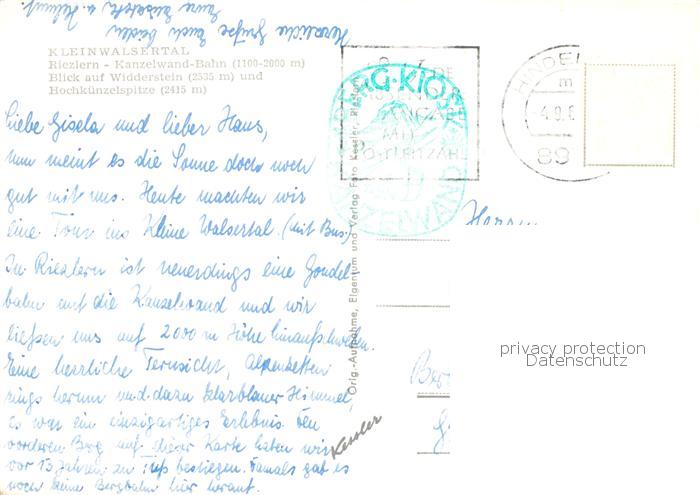 Herzliche Grüße Euch beiden
Eure Liselotte u. Helmut.
KLEINWALSERTAL
Riezlern - Kanzelwand-Bahn (1100-2000 m)
Blick auf Widderstein (2535 m) und
Hochkünzelspitze (2415 m)
Liebe Gisela und lieber Hans,
nun meint es die Sonne doch noch
gut mit uns. Heute machten wir
eine Tour ins Kleine Walsertal. (mit Bus)
In Riezlern ist neuerdings eine Gondel-
bahn auf die Kanzelwand und wir
ließen uns auf 2000 m Höhe hinaufschweben.
Eine herrliche Fernsicht, Alpenketten
rings herum und dazu klarblauer Himmel,
es war ein einzigartiges Erlebnis. Den
vorderen Berg auf dieser Karte haben wir
vor 13 Jahren zu Fuß bestiegen. Damals gab es
noch keine Bergbahn hier herauf.
Kessler
Orig.-Aufnahme, Eigentum und Verlag Foto Kessler, Riezlern
BERG-KIOSK
KANZELWAND
HINDEL
-4.9.6
89
privacy protection
Datenschutz